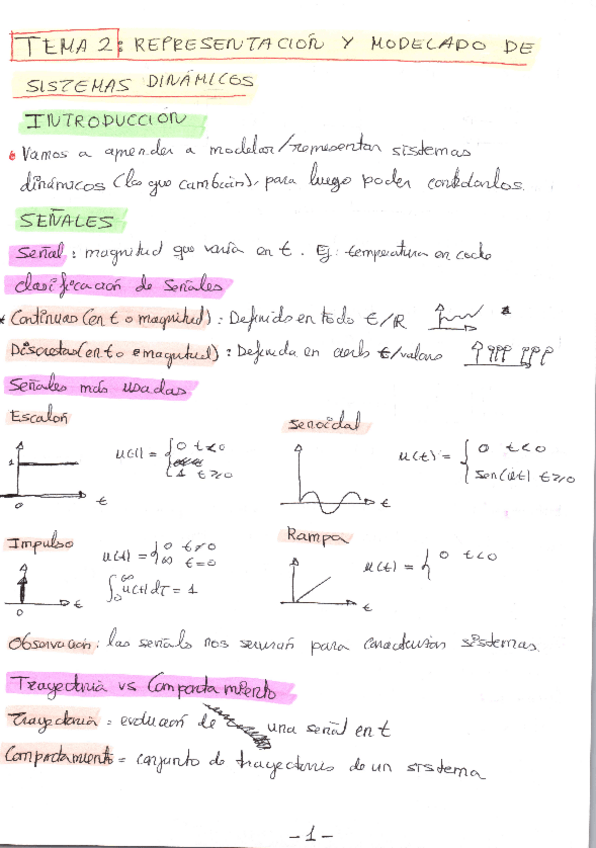 TEMA 2: REPRESENTACIÓN Y MODELADO DE
SISTEMAS DINÁMICOS
INTRODUCCIÓN
Vamos a aprender a modelar/representar sistemas
dinámicos (los que cambian), para luego poder controlarlos.
SEÑALES
Señal: magnitud que varía en t. Ej: temperatura en coche
Clasificación de Señales
* Continuas (en t o magnitud): Definida en todo t/R
Discretas (en t o magnitud): Definida en cierto t/valores
Señales más usadas
Escalón
u(t) = { 0 t<0
1 t≥0
1
0
t
senoidal
u(t) = { 0 t<0
sen(ωt) t≥0
t
Impulso
u(t) = { 0 t≠0
∞ t=0
∫₀^∞ u(t) dτ = 1
0
t
Rampa
u(t) = { 0 t<0
t
Observación: las señales nos servirán para caracterizar sistemas.
Trayectoria vs Comportamiento
Trayectoria: evolución de una señal en t
Comportamiento = conjunto de trayectorias de un sistema
-1-